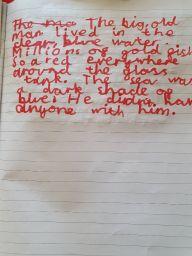 The ma The big, old
man lived in the
deep, blue water.
Millions of gold fish
soared everywhere
around the glass
tank. The sea was
a dark shade of
blue. He didn't have
anyone with him.